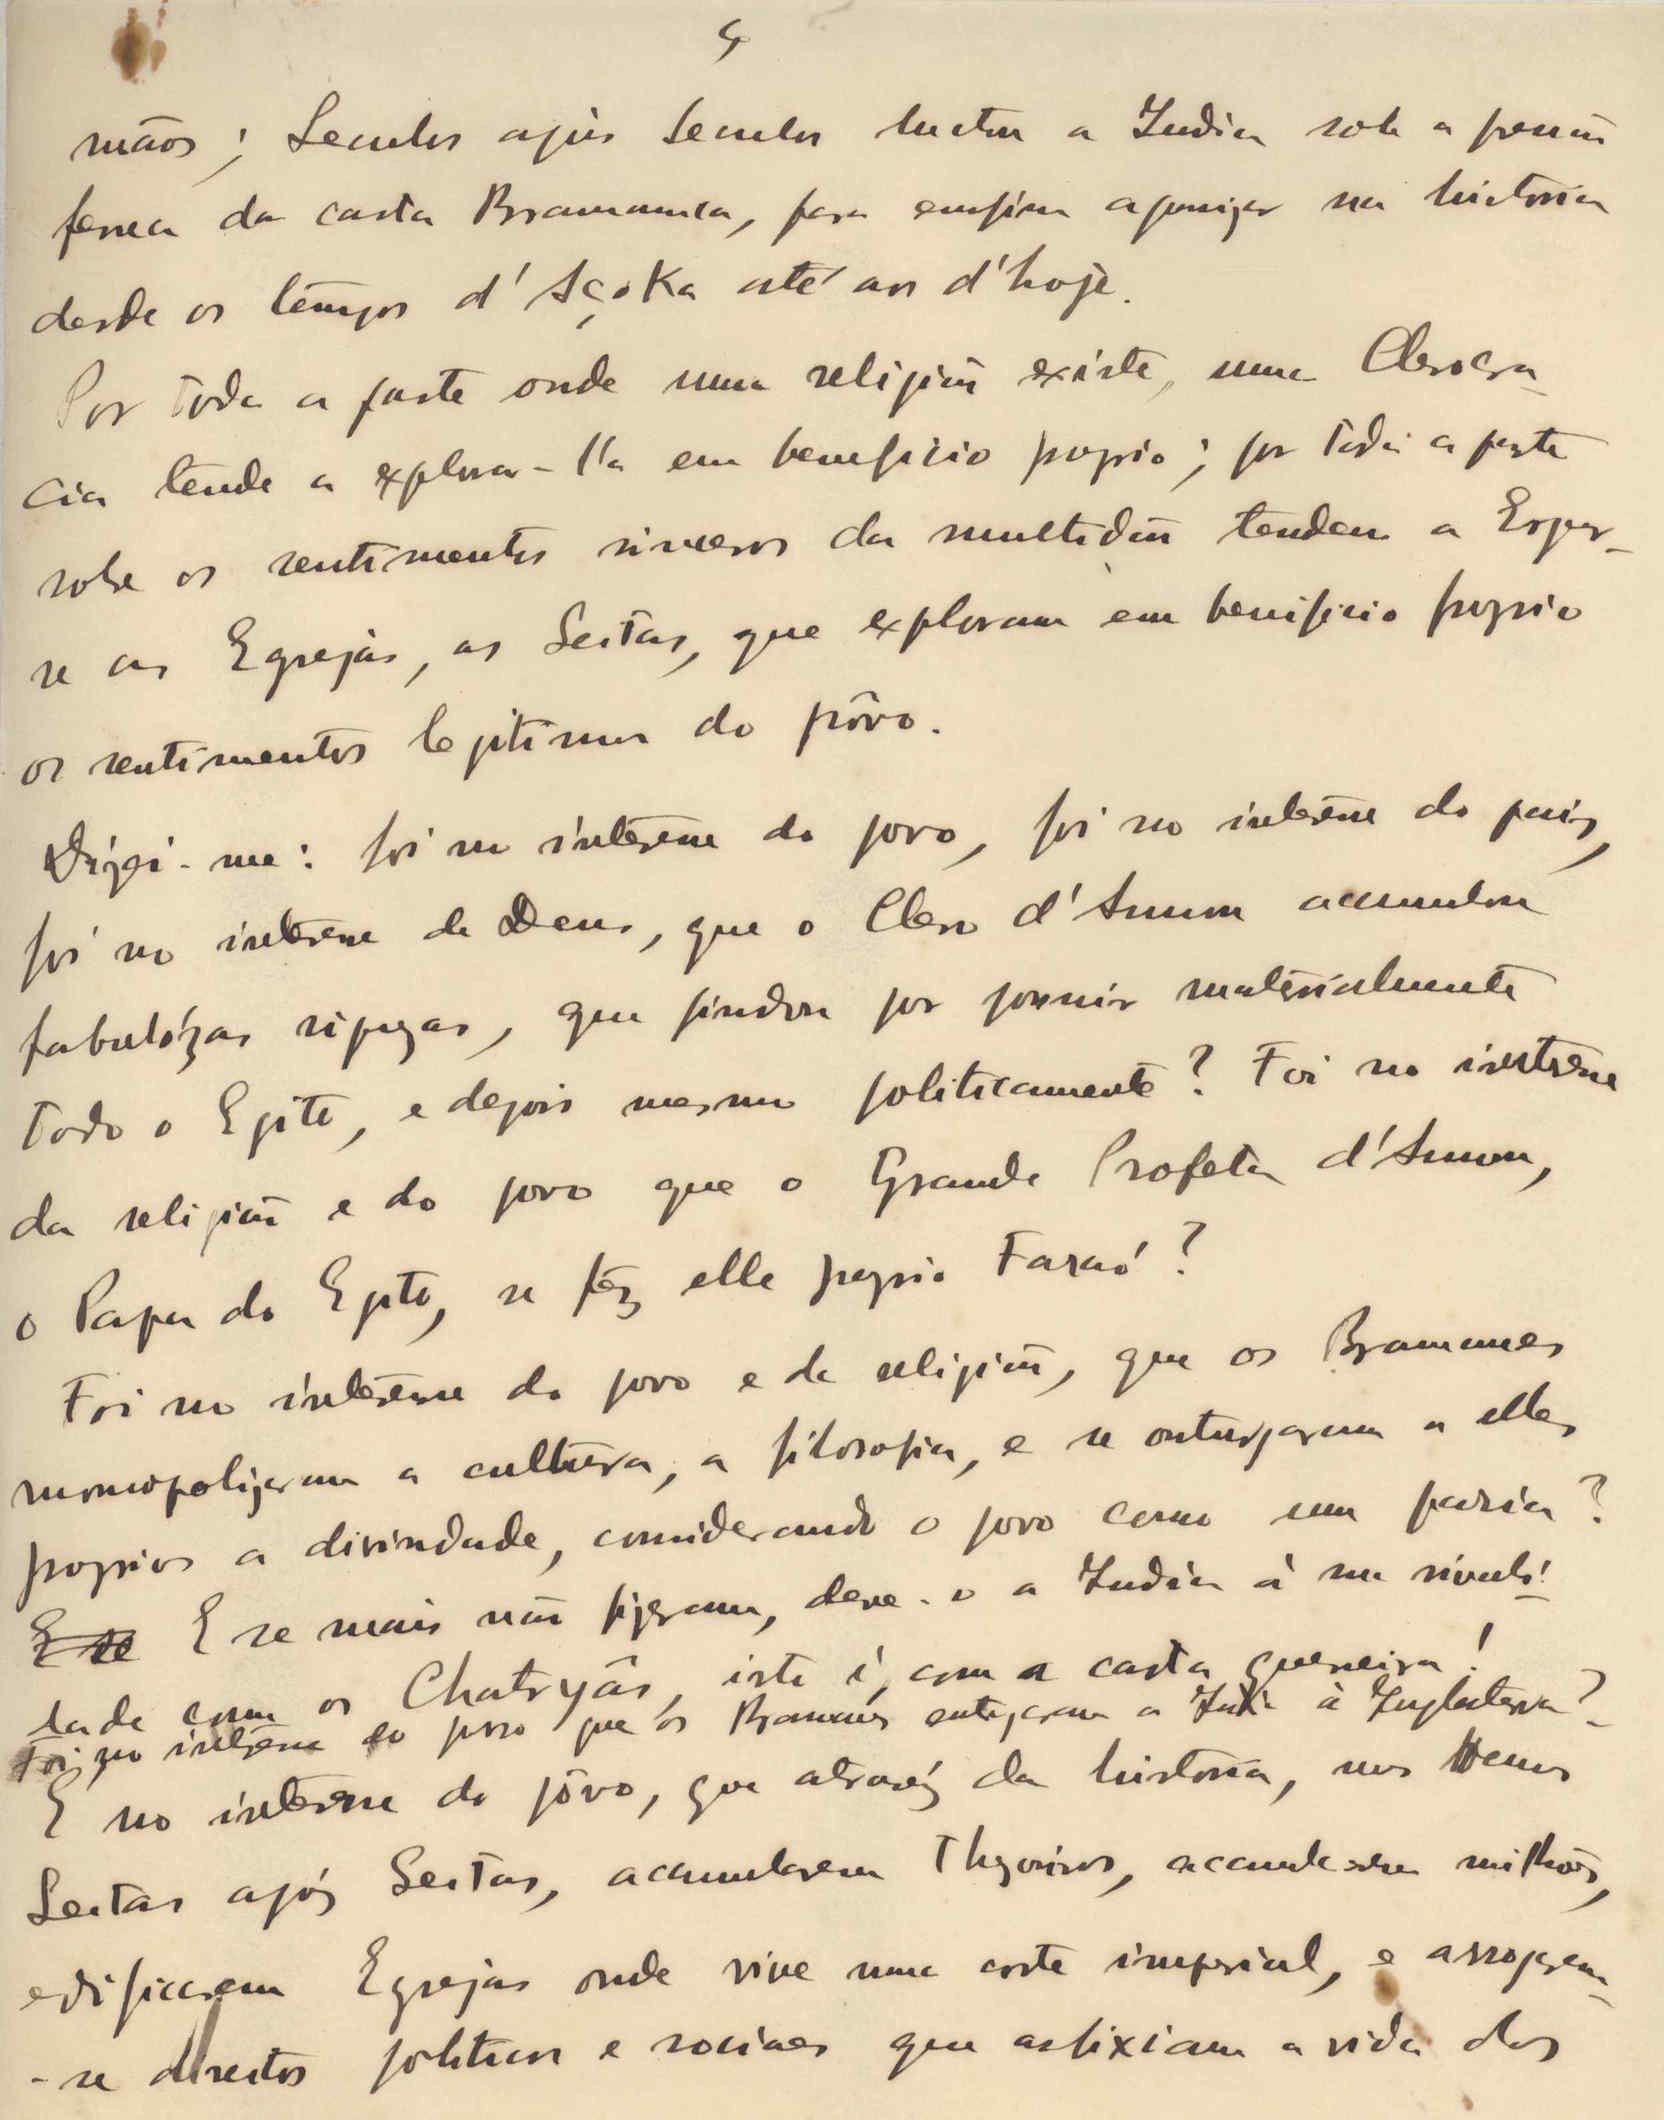 5
mãos; Seculos após Seculos luctou a India sob a pressão
ferrea da casta Bramanica, para emfim agonizar na historia
desde os tempos d'Açoka até aos d'hoje.
Por toda a parte onde uma religião existe, uma Clerocra-
cia tende a explorar-l'a em beneficio proprio; por toda a parte
sobre os sentimentos sinceros da multidão tendem a Erguer-
se as Egrejas, as Seitas, que exploram em beneficio proprio
os sentimentos legitimos do pôvo.
Dizei-me: foi no interesse do povo, foi no interesse do paiz,
foi no interesse de Deus, que o Clero d'Amon acumulou
fabulózas riquezas, que findou por possuir materialmente
todo o Egito, e depois mesmo politicamente? Foi no interesse
da religião e do povo que o Grande Profeta d'Amon,
o Papa do Egito, se fêz elle proprio Faraó?
Foi no interesse do povo e da religião, que os Bramanes
monopolizaram a cultura, a filosofia, e se outorgaram a elles
proprios a divindade, considerando o povo como um paria?
E se E se mais não fizeram, deve-o a India à sua rivali-
dade com os Chatryâs, isto é, com a casta guerreira!
Foi no interesse do povo que os Bramanes entregaram a India à Inglaterra?
E no interesse do pôvo, que atravéz da historia, nos Demos
Seitas após Seitas, acumularem Thezouros, accumularem milhões,
edificarem Egrejas onde vive uma corte imperial, e arrogarem-
-se direitos politicos e sociaes que asfixiam a vida dos